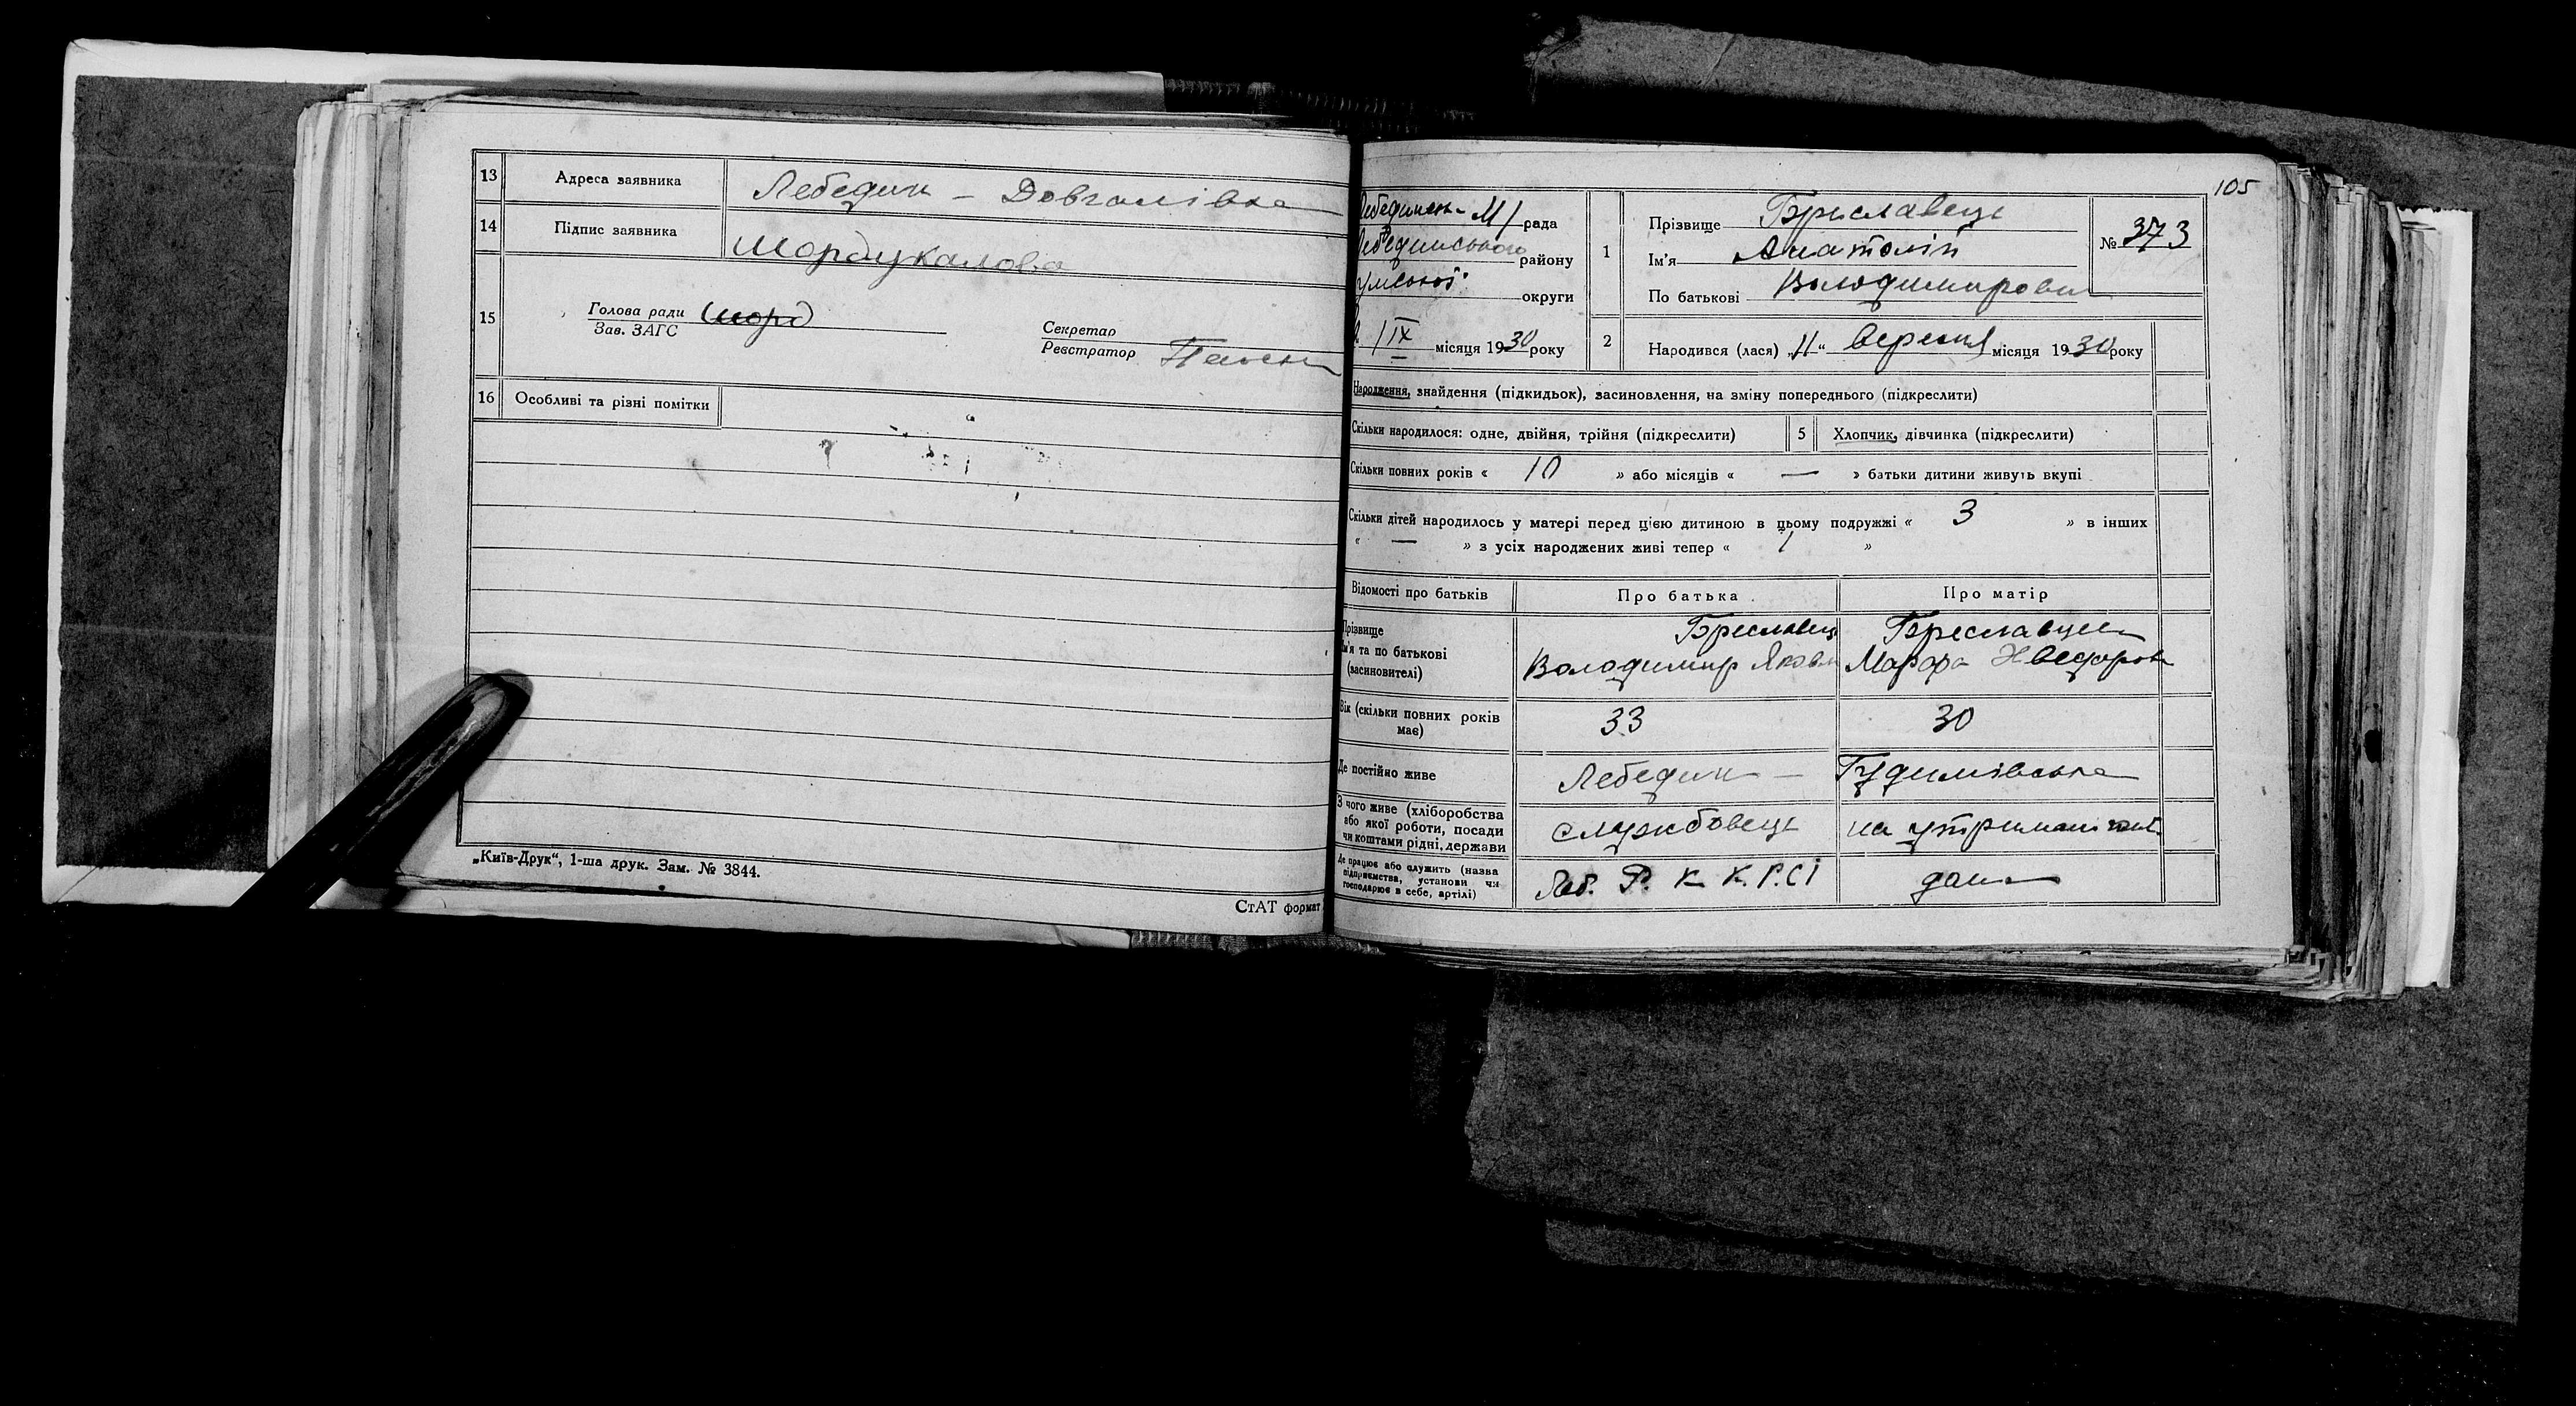 13 Адреса заявника Лебедин - Довгалівка
14 Підпис заявника
15 Голова ради
Зав. ЗАГС
Секретар
Реєстратор
16 Особливі та різні помітки
„Київ-Друк“, 1-ша друк. Зам. № 3844.
СтАТ формат
105
рада
району
округи
IX місяця 1930 року
1 Прізвище Бриславець
Ім'я Анатолій
По батькові Володимирович
№ 373
2 Народився (лася) „11“ вересня місяця 1930 року
Народження, знайдення (підкидьок), засиновлення, на зміну попереднього (підкреслити)
Скільки народилося: одне, двійня, трійня (підкреслити) 5 Хлопчик, дівчинка (підкреслити)
Скільки повних років « 10 » або місяців « — » батьки дитини живуть вкупі
Скільки дітей народилось у матері перед цією дитиною в цьому подружжі « 3 » в інших
« — » з усіх народжених живі тепер « 1 »
Відомості про батьків Про батька Про матір
Прізвище
Ім'я та по батькові
(засиновителі)
Бреславець
Володимир
Бреславцева
Марфа
Вік (скільки повних років
має)
33 30
Де постійно живе Лебедин — Гудимівська
З чого живе (хліборобства
або якої роботи, посади
чи коштами рідні, держави
службовець на утриманні
Де працює або служить (назва
підприємства, установи чи
господарює в себе, артілі)
Леб. Р. К К. Р.СІ дома